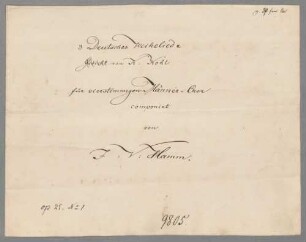 Deutsches Weihelied
Gedicht von R. Kohl
für vierstimmigen Männer-Chor
componirt
von
J. V. Hamm.
op 25. No 1.
9805